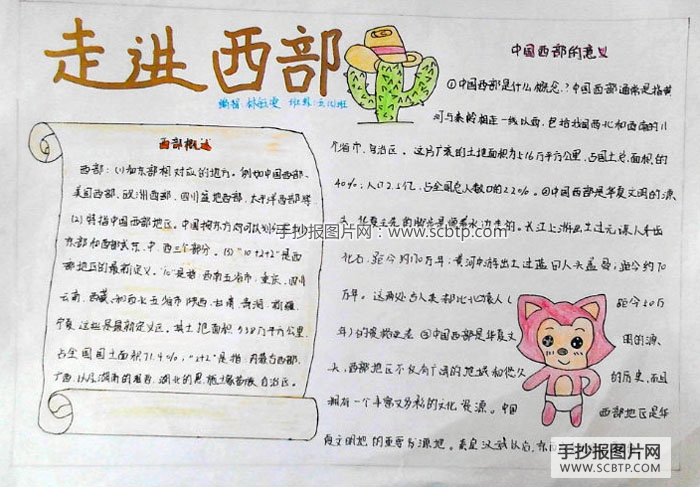 走进西部
编辑
西部概述
西部：(1)和东部相对应的地方。例如中国西部、
美国西部、欧洲西部、四川盆地西部、太平洋西部等
(2)特指中国西部地区。中国按东方向可以划分
东部和西部或东、中、西三个部分。(3)"10+2+2"是西
部地区的最新定义。"10"是指：西南五省市：重庆、四川
云南、西藏、和西北五省市：陕西、甘肃、青海、新疆、
宁夏，这些是最新定义区，其土地面积538万平方公里，
占全国国土面积71.4%；"2+2"是指：内蒙古西部、
广西，以及湖南的湘西、湖北的恩施土家苗族自治区。
中国西部的意义
①中国西部是什么概念？中国西部通常是指黄
河与秦岭相连一线以西，包括我国西北和西南的11
个省市、自治区。这片广袤的土地面积为516万平方公里，占国土总面积的
40%；人口2.5亿，占全国总人数口的22%。②中国西部是华夏文明的源
长江上游出土过元谋人牙齿
化石，距今约170万年；黄河中游出土过蓝田人头盖骨，距今约70
万年。这两处古人类都比北京人（
距今50万
年）③中国西部是华夏文
明的源
头，西部地区不仅有广阔的地域和悠久
的历史，而且
拥有一个丰富又多彩的文化资源。中国
西部地区是华
夏文明的重要发源地。
手抄报图片网：www.scbtp.com
手抄报图片网
WWW.SCBTP.COM